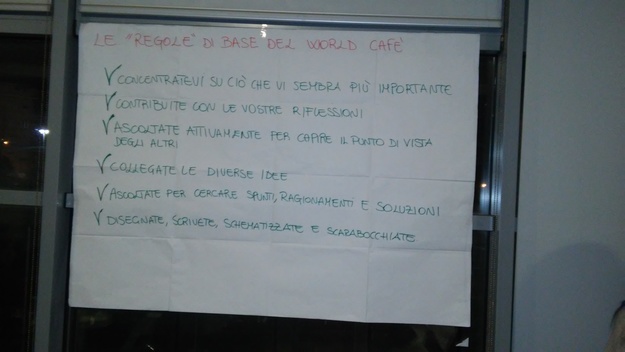 LE "REGOLE" DI BASE DEL WORLD CAFE'
√ CONCENTRATEVI SU CIÒ CHE VI SEMBRA PIÙ IMPORTANTE
√ CONTRIBUITE CON LE VOSTRE RIFLESSIONI
√ ASCOLTATE ATTIVAMENTE PER CAPIRE IL PUNTO DI VISTA
DEGLI ALTRI
√ COLLEGATE LE DIVERSE IDEE
√ ASCOLTATE PER CERCARE SPUNTI, RAGIONAMENTI E SOLUZIONI
√ DISEGNATE, SCRIVETE, SCHEMATIZZATE E SCARABOCCHIATE